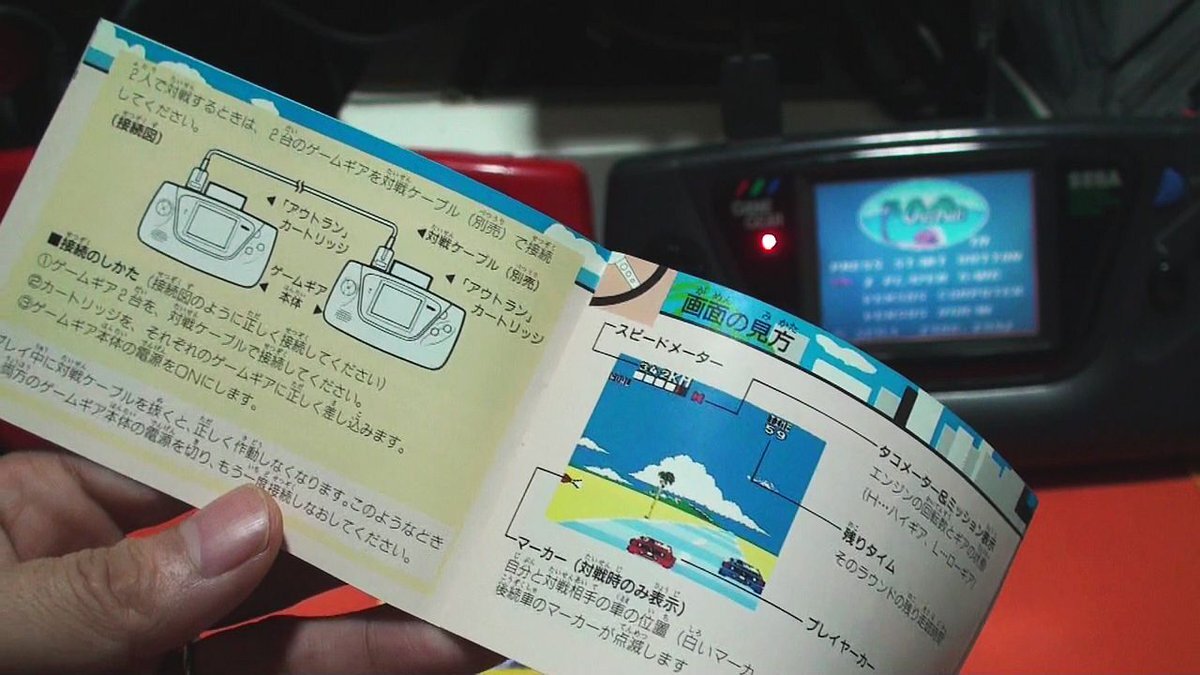 2人で対戦するときは、2台のゲームギアを対戦ケーブル(別売)で接続
してください。
(接続図)
「アウトラン」
カートリッジ
対戦ケーブル(別売)
ゲームギア
本体
「アウトラン」
カートリッジ
■接続のしかた(接続図のように正しく接続してください)
①ゲームギア2台を、対戦ケーブルで接続してください。
②カートリッジを、それぞれのゲームギアに正しく差し込みます。
③ゲームギア本体の電源をONにします。
プレイ中に対戦ケーブルを抜くと、正しく作動しなくなります。このようなとき
両方のゲームギア本体の電源を切り、もう一度接続しなおしてください。
画面の見方
スピードメーター
342KM
TIME
59
タコメーター&ミッション表示
エンジンの回転数とギアの状態
(H…ハイギア、L…ローギア)
残りタイム
そのラウンドの残り走行時間
プレイヤーカー
マーカー(対戦時のみ表示)
自分と対戦相手の車の位置(白いマーカ
後続車のマーカーが点滅します
SEGA
GAME
GEAR
OutRun
PRESS START BUTTON
2 PLAYER GAME